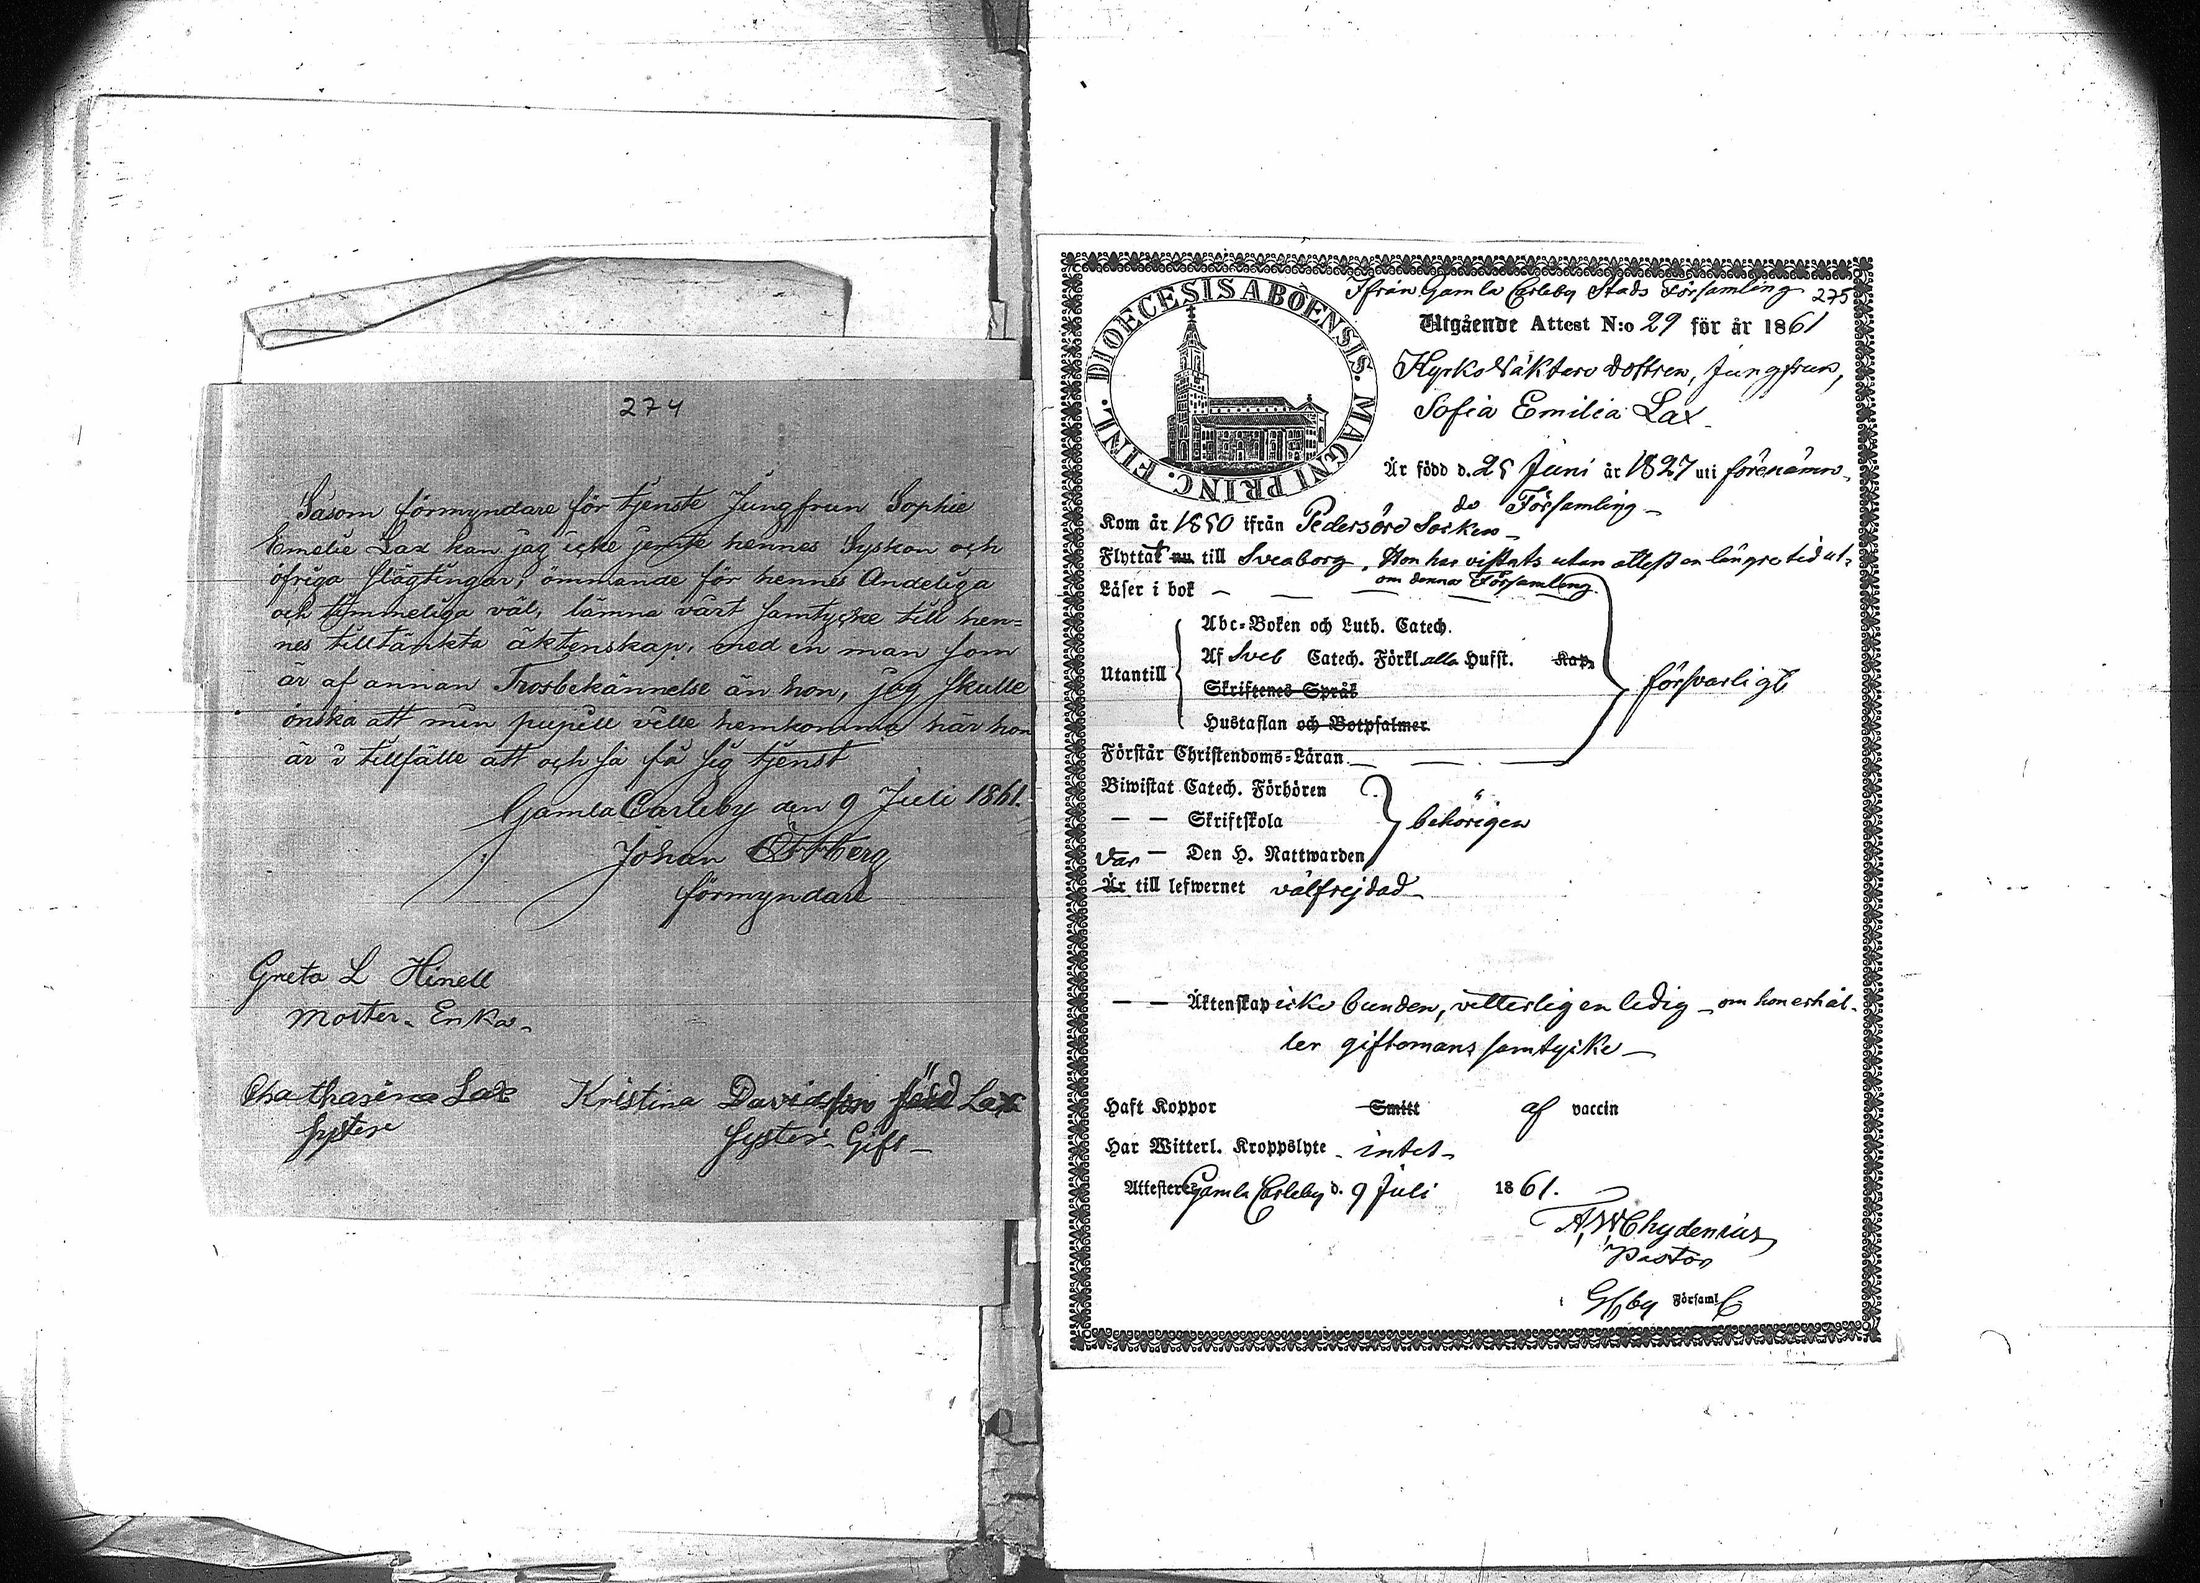 274
Såsom förmyndare för tjenste Jungfrun Sophie
Emelie Lax kan jag icke jemte hennes Syskon och
öfriga slägtingar, ömmande för hennes Andeliga
och timmeliga väl, lämna vårt samtycke till hen=
nes tilltänkta äktenskap, med en man som
är af annan Trosbekännelse än hon, jag skulle
önska att min pupill ville hemkomma här hon
är i tillfälle att och så få sig tjenst
Gamla Carleby den 9 Juli 1861.
Johan
förmyndare
Greta L Hinell
Moster. Enka.
Chatharina Lax
Syster
Kristina Davidsson född Lax
Syster Gift
DIOECESIS ABOENSIS. MAGNI PRINC. FINL.
Ifrån Gamla Carleby Stads Församling 275
Utgående Attest N:o 29 för år 1861
Kyrko Väktare dottren, Jungfrun,
Sofia Emilia Lax
Är född d. 25 Juni år 1827 uti förenämn-
de Församling
Kom år 1850 ifrån Pedersöre Socken
Flyttat nu till Sveaborg. Hon har vistats utan attest en längre tid ut-
om denna Församling
Läser i bok
Abc-Boken och Luth. Catech.
Utantill
Af Sveb Catech. Förkl. alla Hufst. Kap.
Skriftenes Språk
Hustaflan och Botpsalmer
försvarligt
Förstår Christendoms-Läran
Biwistat Catech. Förhören
— — Skriftskola
behörigen
var — Den H. Nattwarden
Är till lefwernet välfrejdad
— — Äktenskap icke bunden, vetterligen ledig — om hon erhål-
ler giftomans samtycke
Haft Koppor Smitt af vaccin
Har Witterl. Kroppslyte intet
Attesteres Gamla Carleby d. 9 Juli 1861.
A, W Chydenius
Pastor
Församl